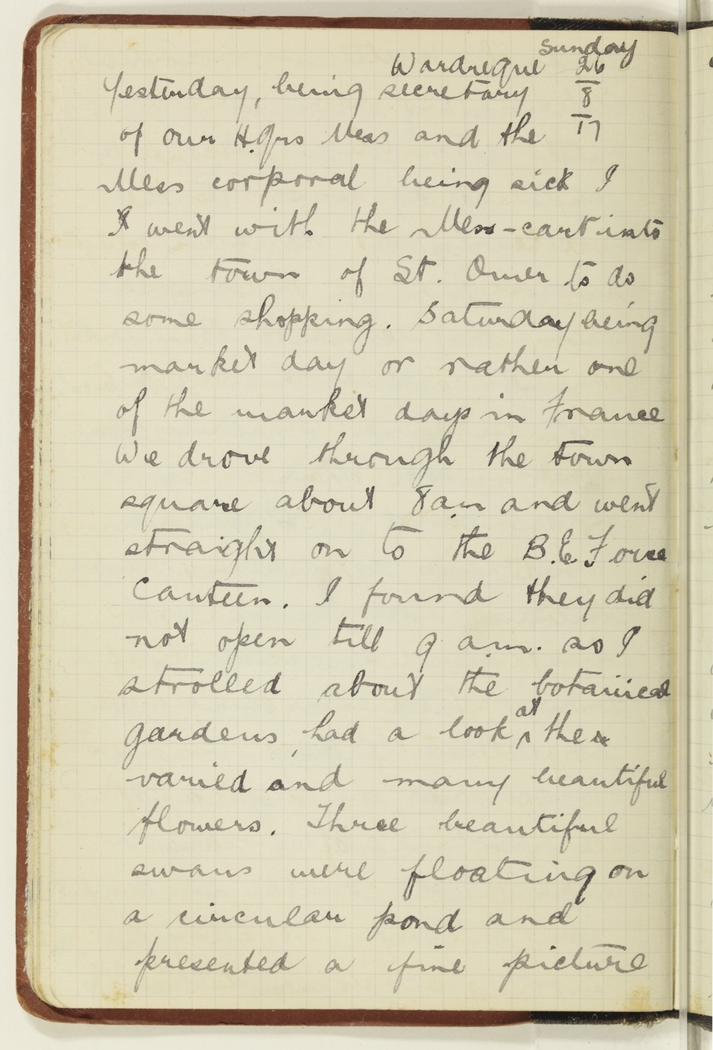 Sunday
Wardreque 26
Yesterday, being secretary 8
of our H.Qrs Mess and the 17
Mess corporal being sick I
I went with the Mess-cart into
the town of St. Omer to do
some shopping. Saturday being
market day or rather one
of the market days in France
We drove through the town
square about 8am and went
straight on to the B.E. Force
Canteen. I found they did
not open till 9 a.m. so I
strolled about the botanical
gardens, had a look at the
varied and many beautiful
flowers. Three beautiful
swans were floating on
a circular pond and
presented a fine picture